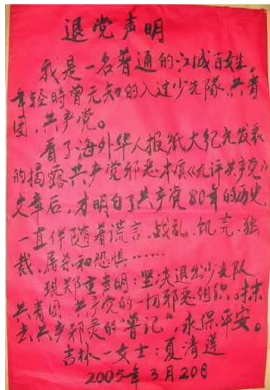 退党声明
我是一名普通的江城百姓，
年轻时曾无知的入过少先隊，共青
团，共产党。
看了海外华人报纸大纪元发表
的揭露共产党邪恶本质《九评共产党》
文章后，才明白了共产党80年的历史，
一直伴随着谎言，战乱，饥荒，独
裁，屠杀和恐惧……
现郑重声明：坚决退出少先队
共青团，共产党的一切邪恶组织。抹
去共产邪灵的“兽记”，永保平安。
吉林一女士：夏清莲
2005年3月20日